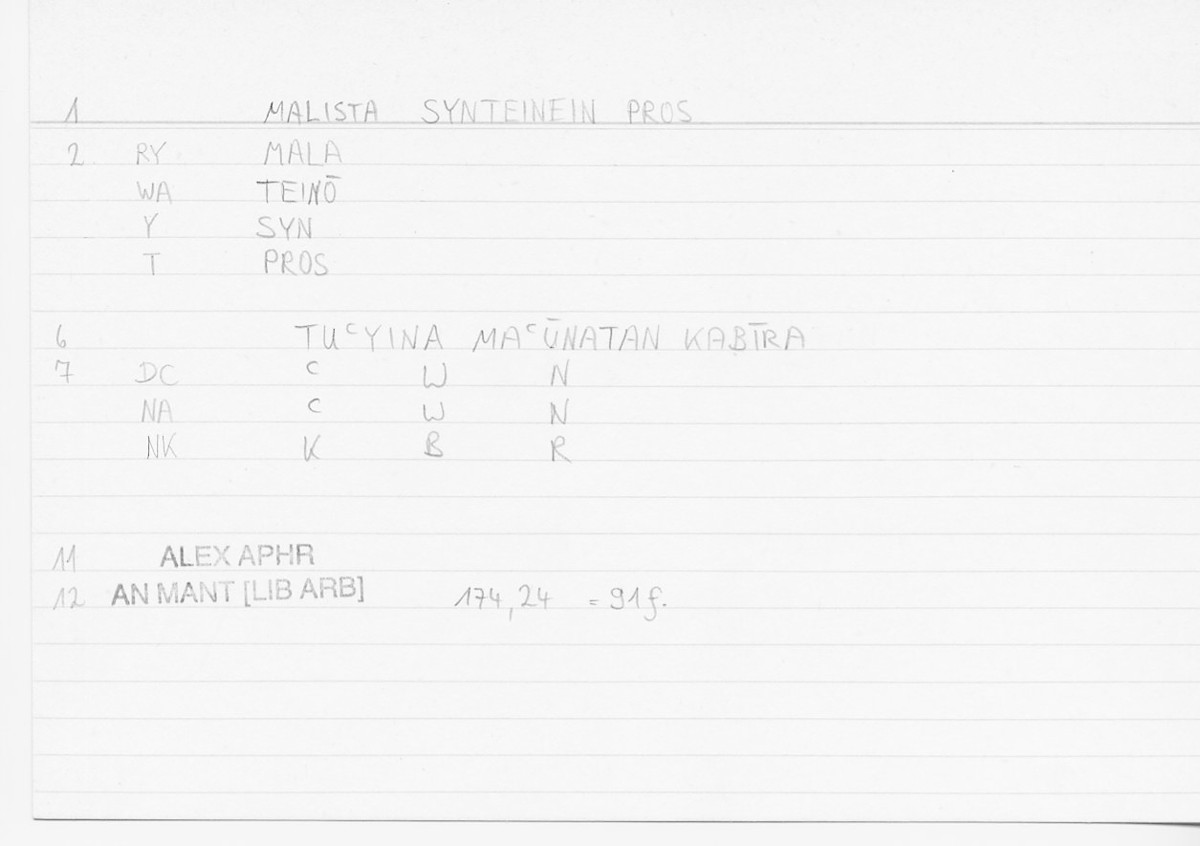 1 MALISTA SYNTEINEIN PROS
2 RY MALA
WA TEINŌ
Y SYN
T PROS
6 TUᶜYINA MAᶜŪNATAN KABĪRA
7 DC ᶜ W N
NA ᶜ W N
NK K B R
11 ALEX APHR
12 AN MANT [LIB ARB] 174,24 = 91f.